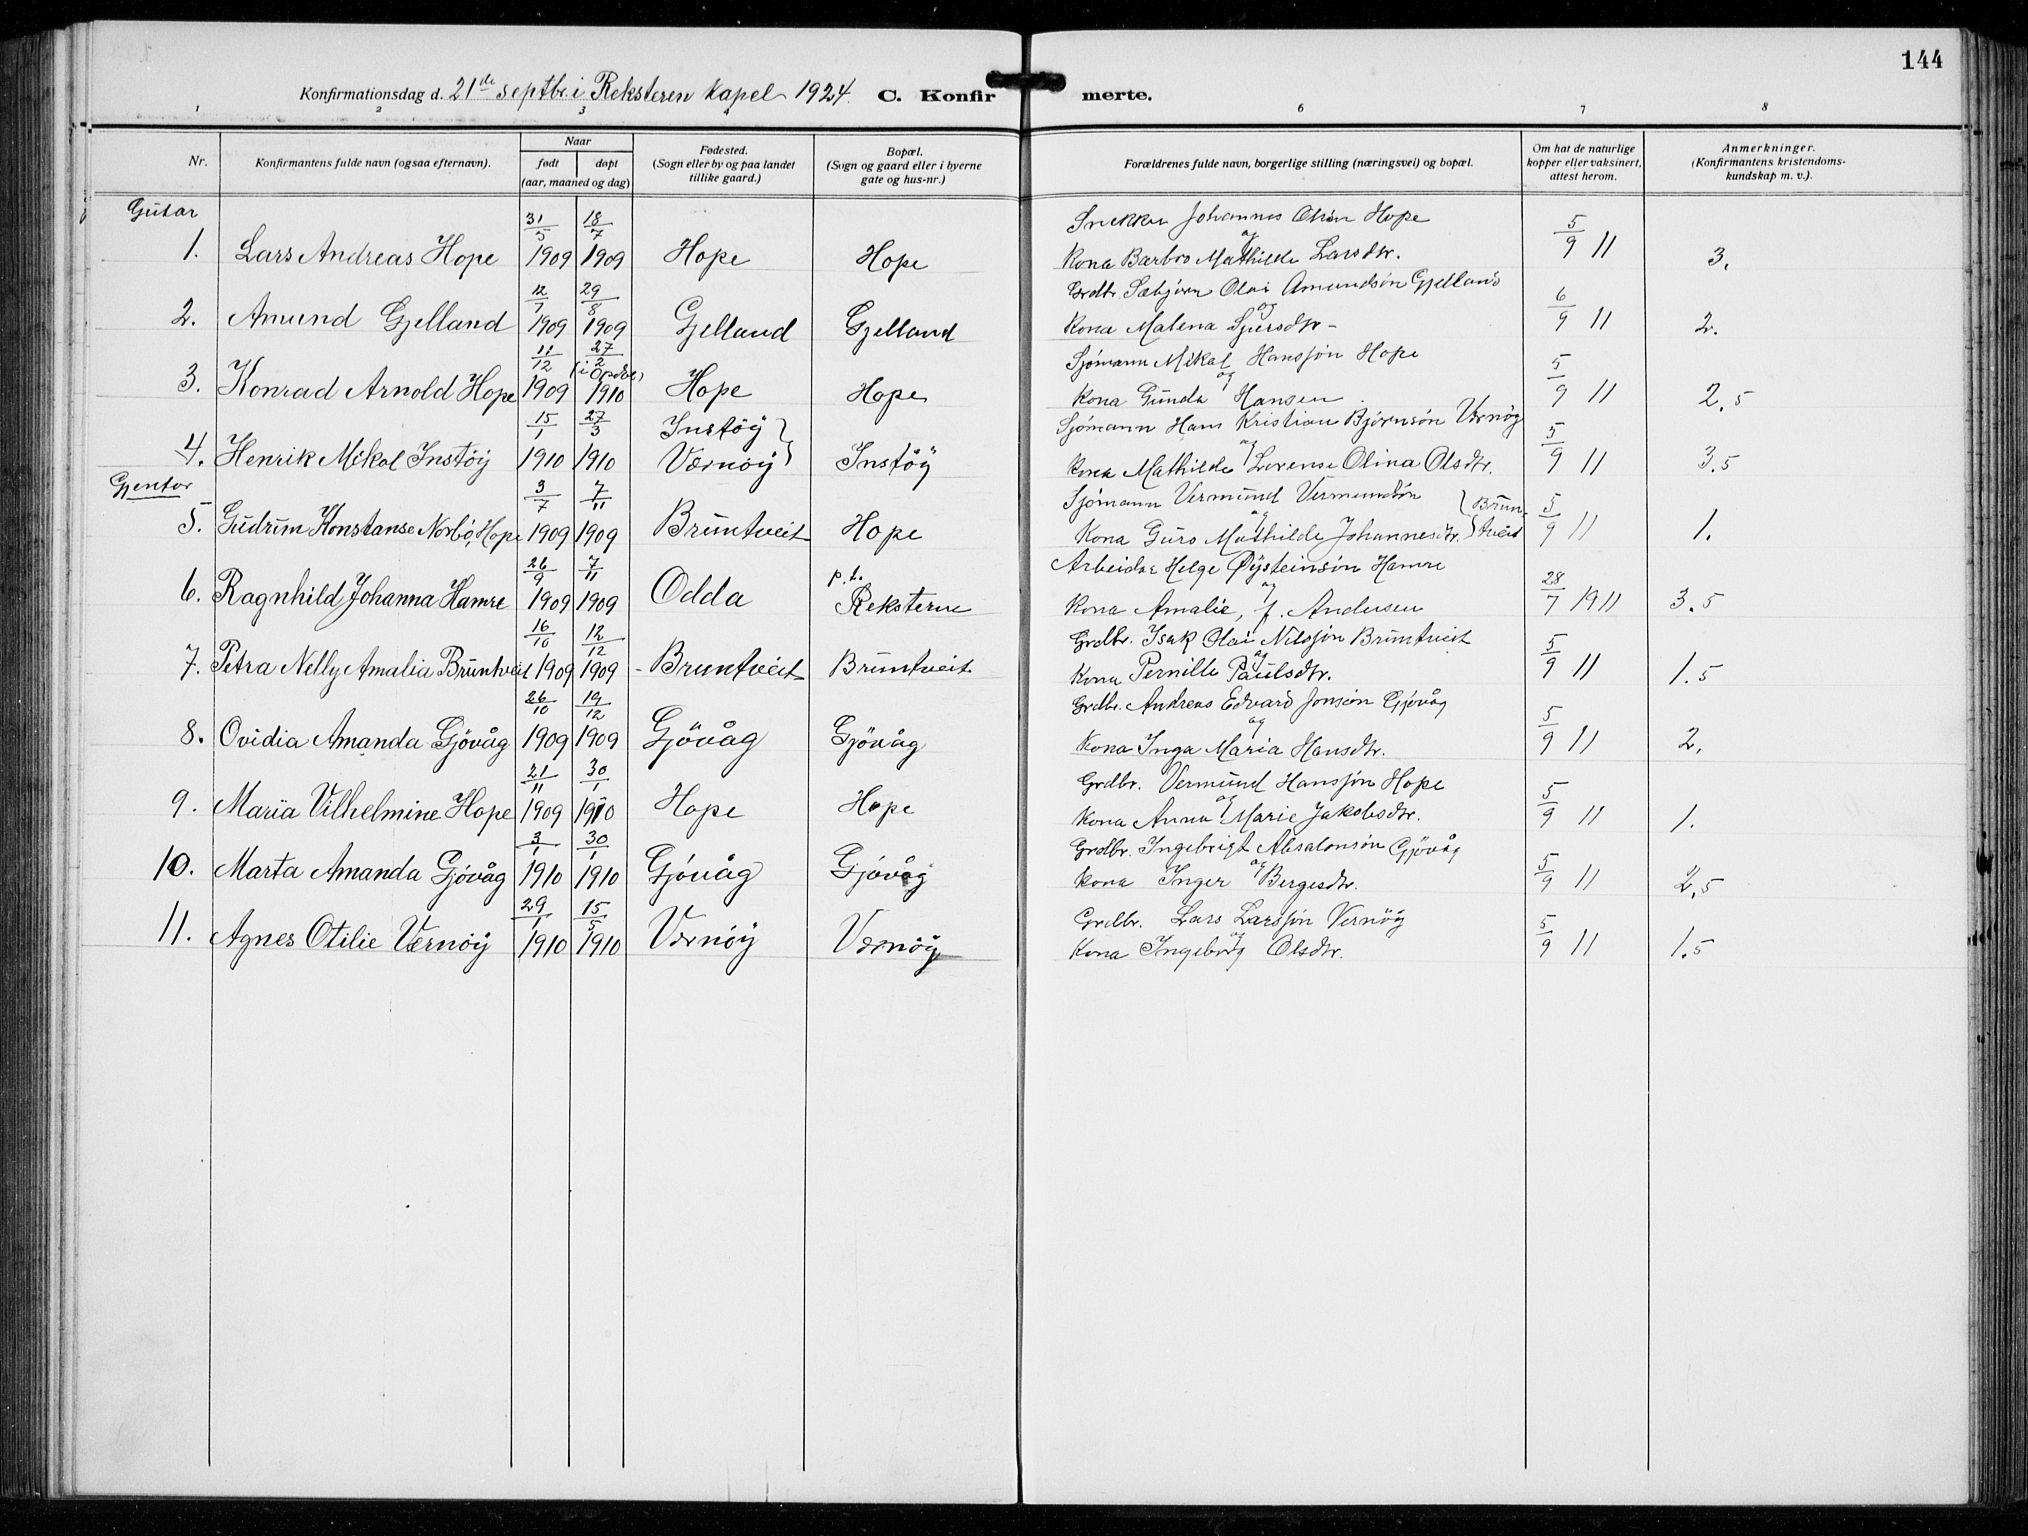 144
Konfirmationsdag d. 21de septbr. i Reksteren kapel 1924. C. Konfirmerte.
1 2 3 4 6 7 8
Nr. Konfirmantens fulde navn (ogsaa efternavn). Naar født døpt (aar, maaned og dag) Fødested. (Sogn eller by og paa landet tillike gaard.) Bopæl. (Sogn og gaard eller i byerne gate og hus-nr.) Forældrenes fulde navn, borgerlige stilling (næringsvei) og bopæl. Om hat de naturlige kopper eller vaksinert, attest herom. Anmerkninger. (Konfirmantens kristendomskundskap m. v.).
Gutar
1. Lars Andreas Hope 31/5 1909 18/7 1909 Hope Hope Snekker Johannes Olsen Hope og kona Barbro Mathilde Larsdtr. 5/9 11 3.
2. Amund Gjelland 12/7 1909 29/8 1909 Gjelland Gjelland Grdbr. Sæbjørn Olai Amundsøn Gjelland og kona Malena Sjursdtr- 6/9 11 2.
3. Konrad Arnold Hope 11/12 1909 27/2 (i Opdal) 1910 Hope Hope Sjømann Mikal Hansson Hope og kona Gunda Hansen. 5/9 11 2,5
4. Henrik Mikal Instöy 15/1 1910 27/3 1910 Instöy Værnøy } Instöy Sjömann Hans Kristian Björnsön Værnöy og kona Mathilde Lorense Olina Olsdtr. 5/9 11 3.5
Gjentor
5. Gudrun Konstanse Norbö, Hope 3/7 1909 7/11 1909 Bruntveit Hope Sjömann Vermund Vermundsön og Kona Guro Mathilde Johannesdtr. } Bruntveit 5/9 11 1.
6. Ragnhild Johanna Hamre 26/9 1909 7/11 1909 Odda p.t. Reksteren Arbeidar Helge Øysteinsön Hamre og kona Amalie, f. Andersen 28/7 1911 3.5
7. Petra Nelly Amalia Bruntveit 16/10 1909 12/12 1909 Bruntveit Bruntveit Grdbr. Isak Olai Nilsson Bruntveit og kona Pernille Paulsdtr. 5/9 11 1.5
8. Ovidia Amanda Gjövåg 26/10 1909 19/12 1909 Gjövåg Gjövåg Grdbr. Andreas Edvard Jonson Gjövåg og kona Inga Maria Hansdtr. 5/9 11 2.
9. Maria Vilhelmine Hope 21/11 1909 30/1 1910 Hope Hope Grdbr. Vermund Hansson Hope og kona Anna Marie Jakobsdtr. 5/9 11 1.
10. Marta Amanda Gjövåg 3/1 1910 30/1 1910 Gjövåg Gjövåg Grdbr. Ingebrigt Absalonsön Gjövåg og kona Inger Bergesdtr. 5/9 11 2,5
11. Agnes Otilie Værnöy 29/1 1910 15/5 1910 Værnöy Værnöy Grdbr. Lars Larsson Vernöy og kona Ingeborg Olsdtr. 5/9 11 1.5